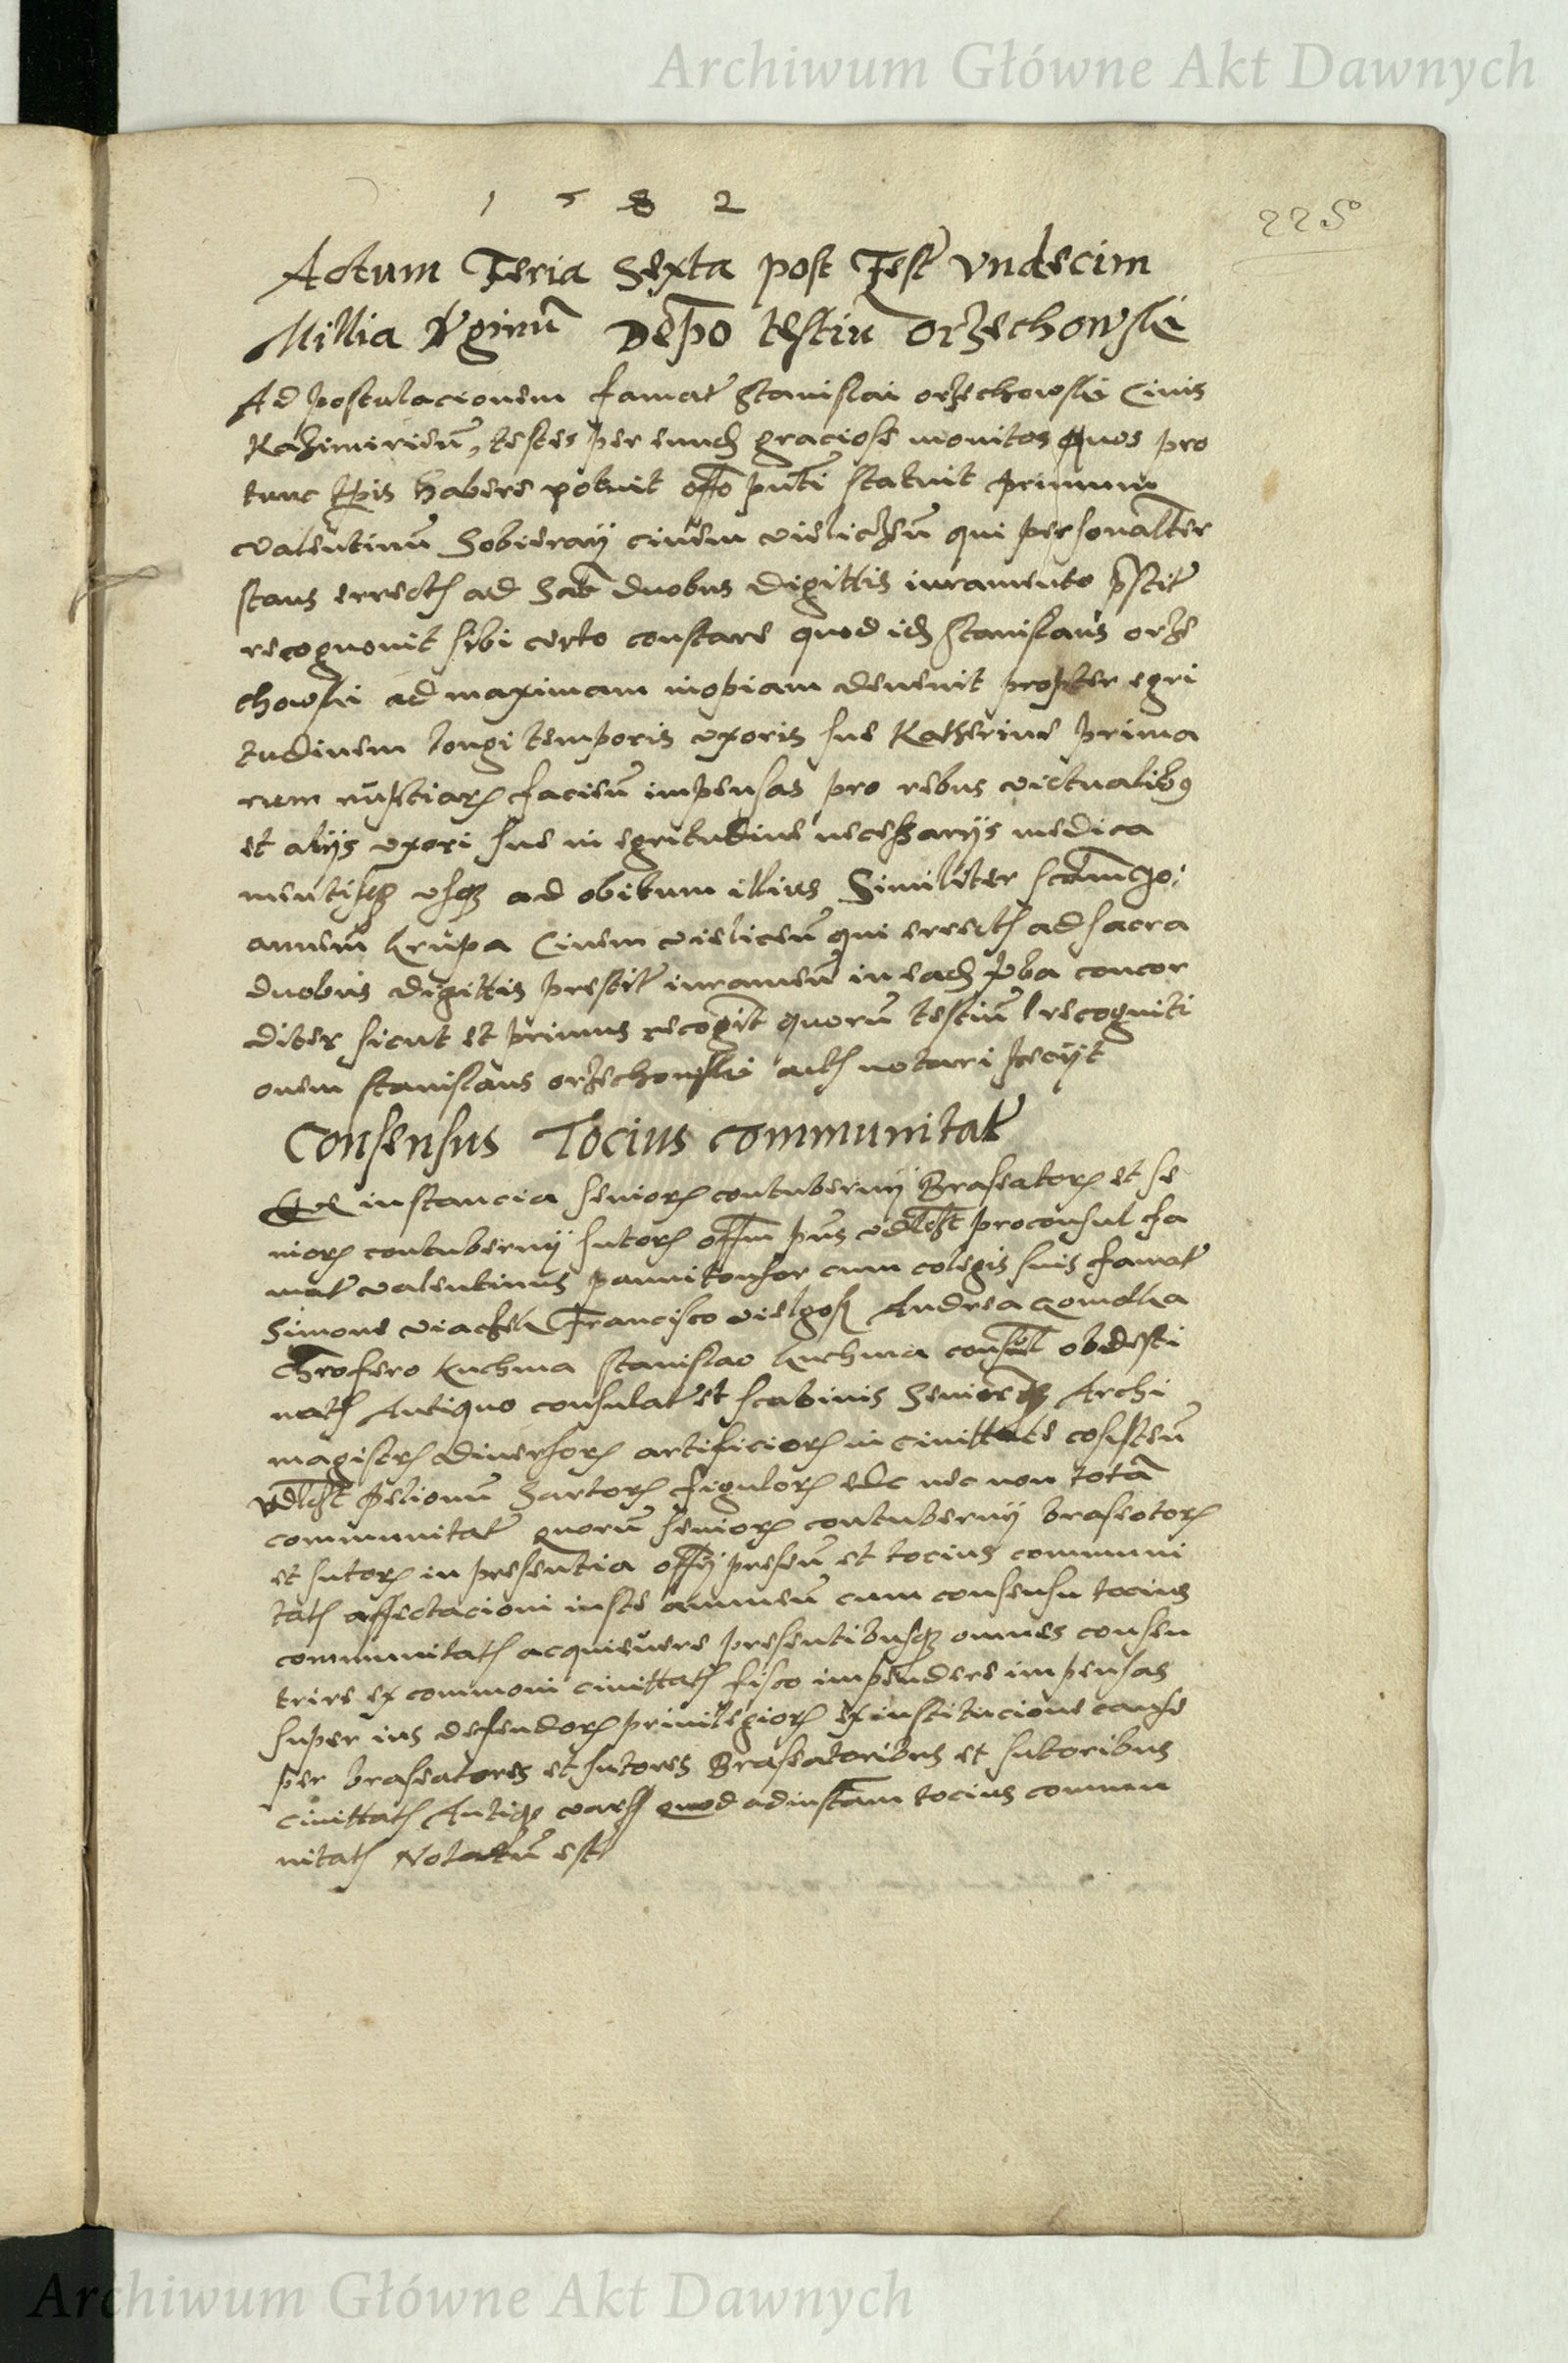 Archiwum Główne Akt Dawnych
1 5 8 2
225
Actum Feria Sexta post Fest Vndecim
Millia Vrginu Depo testiu Orzechowski
Ad postulacionem famat Stanislai orzechowski Ciuis
Kazimirien, testes per eund graciose monitos quos pro
tunc habere potuit offo pnti statuit primum
Valentinu Sobieray ciuem vieliczen qui personalter
stans errect ad duobus digittis iuramento prstit
recognouit sibi certo constare quod id Stanislaus orze
chowski ad maximam inopiam deuenit propter egri
tudinem longi temporis vxoris sue Katherine prima
rum nuptiar facien impensas pro rebus victualib9
et alijs vxori sue in egritudine necessarijs medica
mentisq vsq ad obitum illius Similiter scdm Jo:
annem Krupa Ciuem vielicen qui errect ad sacra
duobus digittis prestit iuramen in ead vba concor
diter sicut et primus recognit quoru testiu recogniti
onem Stanislaus orzechowski act notari fecijt
Consensus Tocius Communitat
instancia senior contubernij Braseator et se
nior contubernij sutor offm pns vdlczt proconsul fa
mat valentinus pannitonsor cum colegis suis famat
Simone Francisco Andrea Gomolka
Chrofero Kuchma Stanislao Kuchma consul obdesti
nat Antiquo consulat et scabinis Archi
magistr diuersor artificior in ciuittate cosisten
vdlczt pelionu Sartor figulor etc nec non tota
communitat quoru senior contubernij braseotor
et sutor in presentia offij presen et tocius communi
tat affectacioni iuste annuen cum consensu tocius
communitat acquieuere presentibusq omnes consen
tire ex commoni ciuittat fisco impendere impensas
super ius defendor priuilegior ex institucione cause
per braseatores et sutores Braseatoribus et sutoribus
ciuittat Antiq vars quod ad instam tocius commu
nitat Notatu est
Archiwum Główne Akt Dawnych